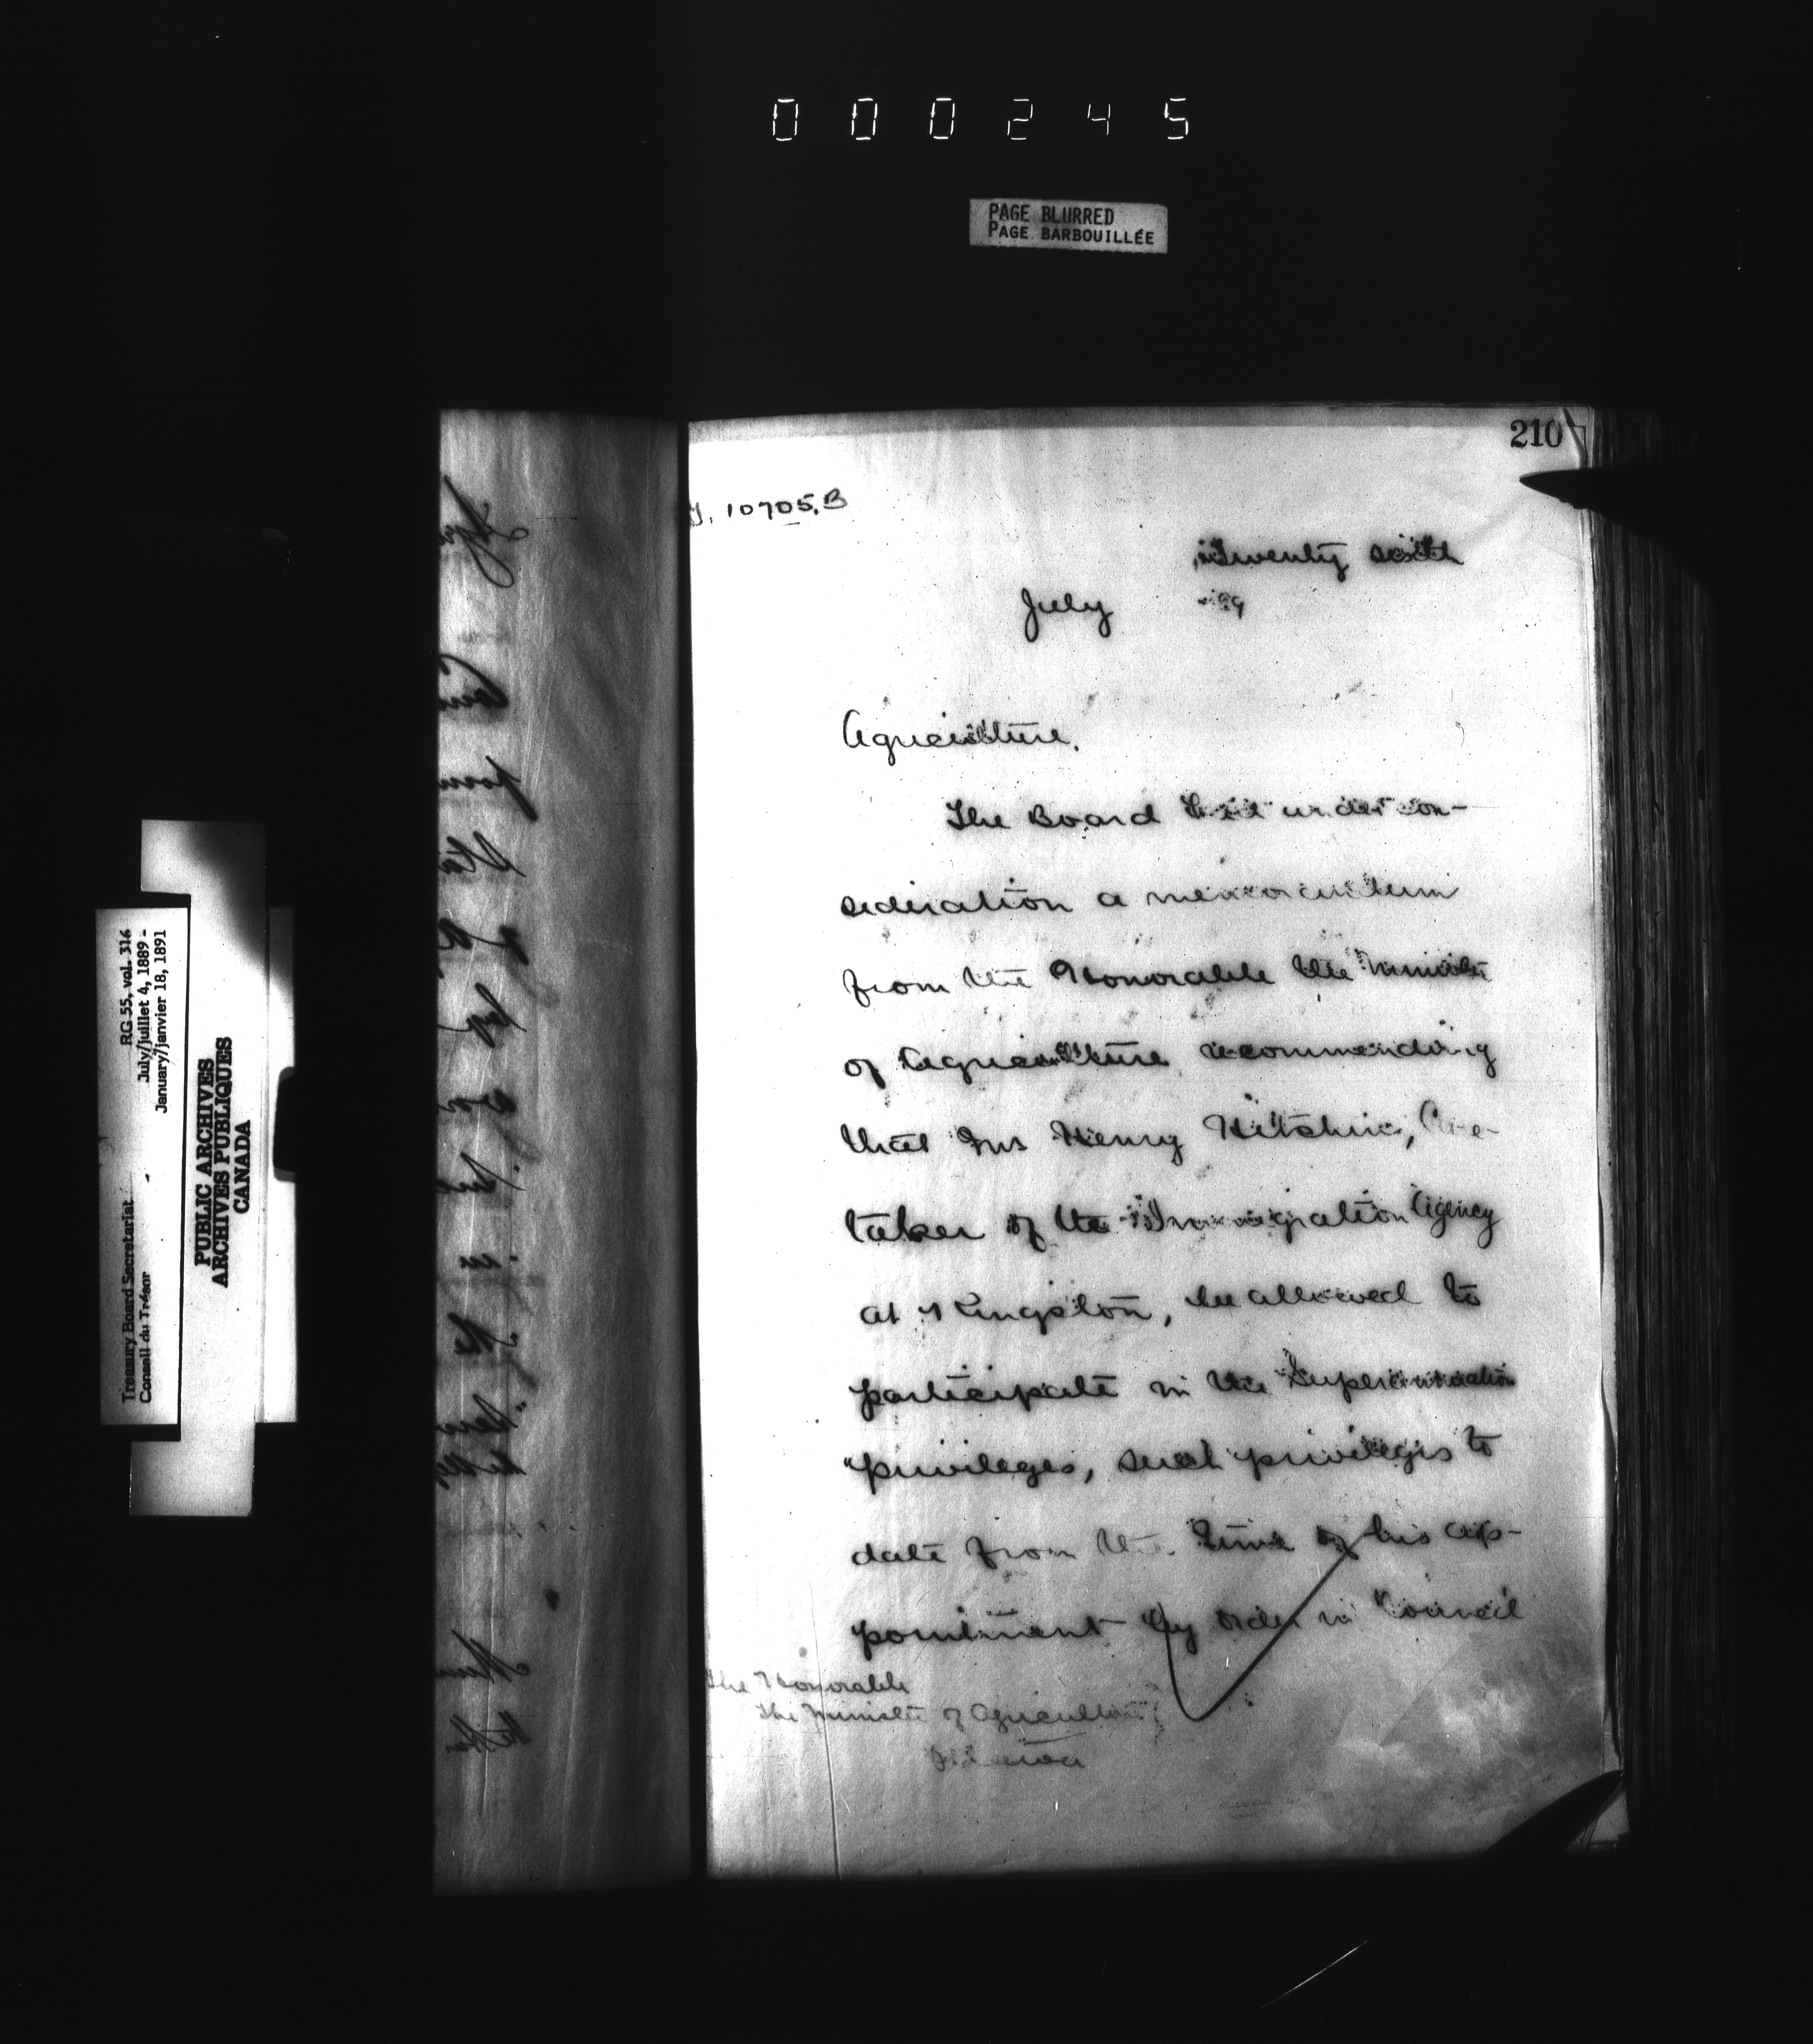 000245
PAGE BLURRED
PAGE BARBOUILLÉE
210
10705.B
Twenty sixth
July 89
Agriculture.
The Board had under con-
sideration a memorandum
from the Honorable the Minister
of Agriculture recommending
that Mr Henry Care-
taker of the Immigration Agency
at Kingston, be allowed to
participate in the Superannuation
privileges, such privileges to
date from the time of his ap-
pointment by order in Council
The Honorable
The Minister of Agriculture
Ottawa
Treasury Board Secretariat RG 55, vol. 316
Conseil du Trésor July/juillet 4, 1889 -
January/janvier 18, 1891
PUBLIC ARCHIVES
ARCHIVES PUBLIQUES
CANADA